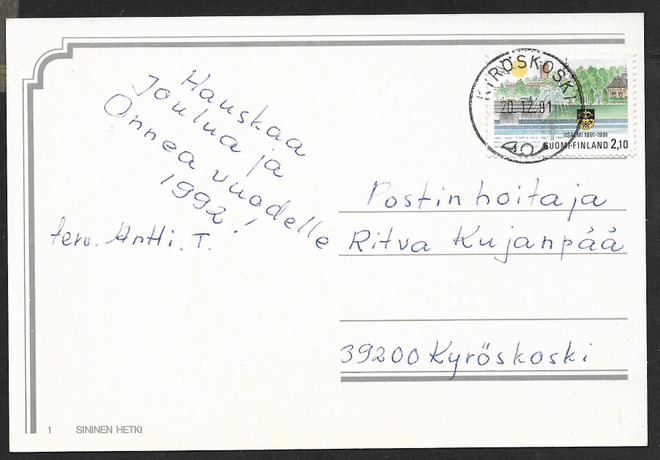 Hauskaa
Joulua ja
Onnea vuodelle
1992!
terv. Antti. T.
KYRÖSKOSKI
20.12.91
IISALMI 1891-1991
SUOMI-FINLAND 2,10
Postinhoitaja
Ritva Kujanpää
39200 Kyröskoski
1 SININEN HETKI